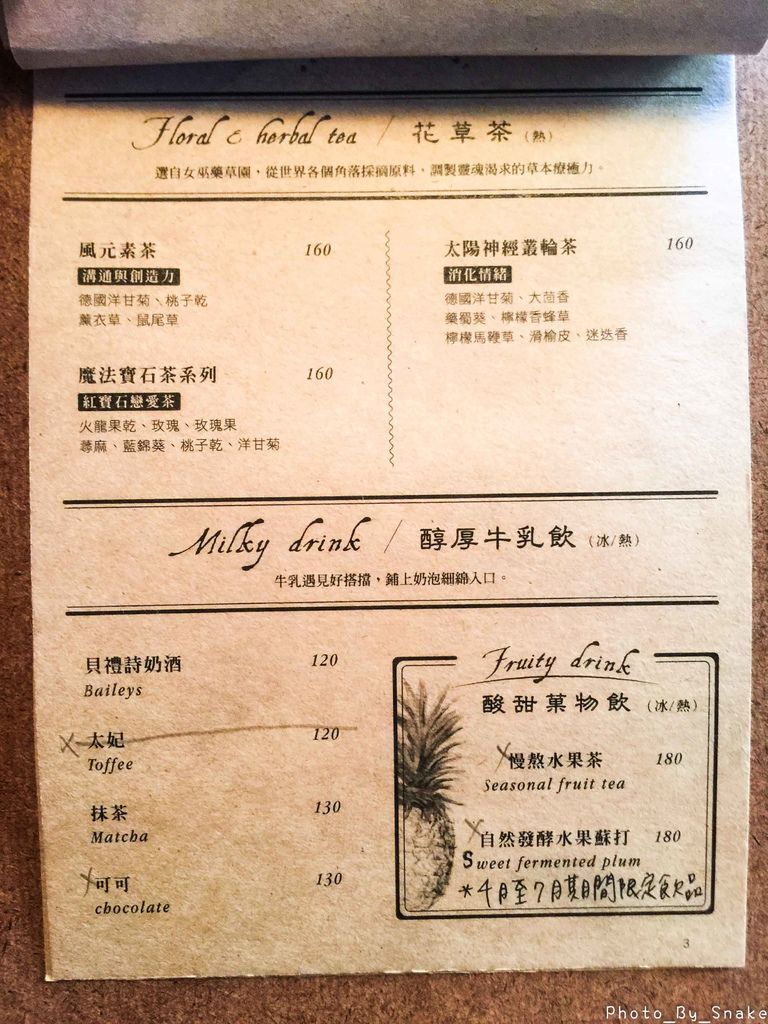 Floral & herbal tea / 花草茶 (熱)
選自女巫藥草園，從世界各個角落採摘原料，調製靈魂渴求的草本療癒力。
風元素茶 160
溝通與創造力
德國洋甘菊、桃子乾
薰衣草、鼠尾草
魔法寶石茶系列 160
紅寶石戀愛茶
火龍果乾、玫瑰、玫瑰果
蕁麻、藍錦葵、桃子乾、洋甘菊
太陽神經叢輪茶 160
消化情緒
德國洋甘菊、大茴香
藥蜀葵、檸檬香蜂草
檸檬馬鞭草、滑榆皮、迷迭香
Milky drink / 醇厚牛乳飲 (冰/熱)
牛乳遇見好搭擋，鋪上奶泡細綿入口。
貝禮詩奶酒 120
Baileys
太妃 120
Toffee
抹茶 130
Matcha
可可 130
chocolate
Fruity drink
酸甜菓物飲 (冰/熱)
慢熬水果茶 180
Seasonal fruit tea
自然發酵水果蘇打 180
Sweet fermented plum
*4月至7月其月間限定飲品
3
Photo_By_Snake